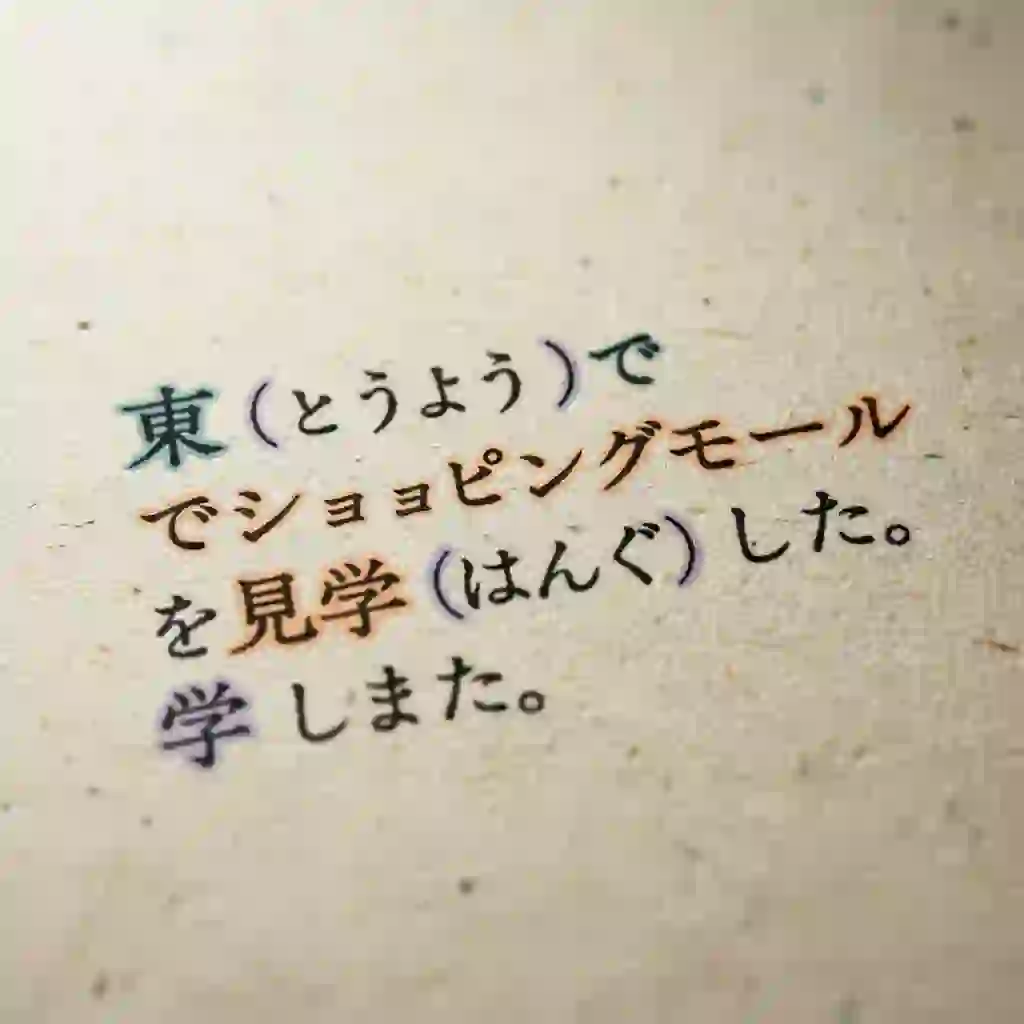 東（とうよう）で
でショョピングモール
を見学（はんぐ）した。
学しまた。